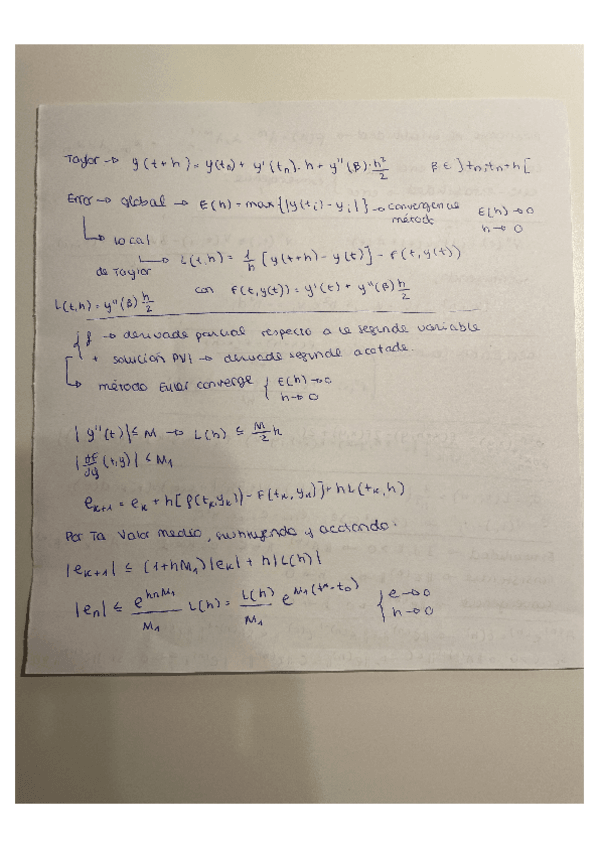 Taylor → y(t+h) = y(t₀) + y'(tₙ)·h + y''(β)·h²/2    β ∈ ]tₙ, tₙ+h[
Error → global → E(h) = max{|y(tᵢ) - yᵢ|} → convergencia método    E(h) → 0 h → 0
↳ local
↳ L(t,h) = 1/h [y(t+h) - y(t)] - f(t, y(t))
de Taylor
con f(t, y(t)) = y'(t) + y''(β) h/2
L(t,h) = y''(β) h/2
{ f → derivada parcial respecto a la segunda variable
+ solución PVI → derivada segunda acotada
↳ método Euler converge { E(h) → 0 h → 0
|y''(t)| ≤ M → L(h) ≤ M/2 h
|∂f/∂y (t,y)| ≤ M₁
eₖ₊₁ = eₖ + h[f(tₖ, yₖ)) - f(tₖ, yₖ)] + h L(tₖ, h)
Por Ta Valor medio, sustituyendo y acotando:
|eₖ₊₁| ≤ (1+hM₁)|eₖ| + h|L(h)|
|eₙ| ≤ e^(hnM₁)/M₁ L(h) = L(h)/M₁ e^(M₁(tⁿ - t₀))    { e → 0 h → 0